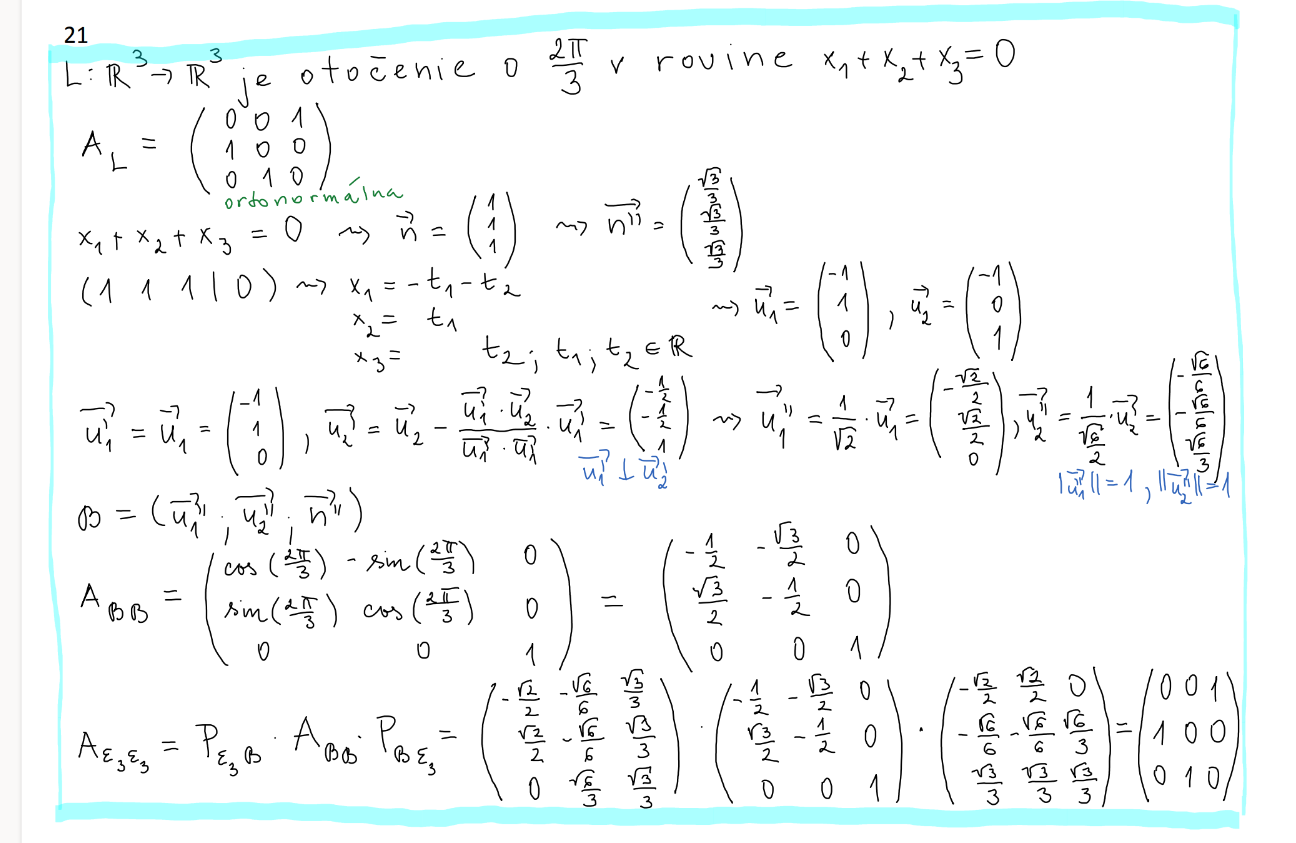 21
L: ℝ³ → ℝ³ je otočenie o 2π/3 v rovine x₁ + x₂ + x₃ = 0
A_L = (0 0 1; 1 0 0; 0 1 0)
ortonormálna
x₁ + x₂ + x₃ = 0 ⇝ n⃗ = (1; 1; 1) ⇝ n⃗'' = (√3/3; √3/3; √3/3)
(1 1 1 | 0) ⇝ x₁ = -t₁ - t₂
x₂ = t₁
x₃ = t₂ ; t₁ ; t₂ ∈ ℝ
⇝ u⃗₁ = (-1; 1; 0) , u⃗₂ = (-1; 0; 1)
u⃗₁' = u⃗₁ = (-1; 1; 0) , u⃗₂' = u⃗₂ - (u⃗₁' · u⃗₂)/(u⃗₁' · u⃗₁') · u⃗₁' = (-1/2; -1/2; 1) ⇝ u⃗₁'' = 1/√2 · u⃗₁' = (-√2/2; √2/2; 0) , u⃗₂'' = 1/(√6/2) · u⃗₂' = (-√6/6; -√6/6; √6/3)
u⃗₁' ⊥ u⃗₂'
||u⃗₁''|| = 1 , ||u⃗₂''|| = 1
ℬ = (u⃗₁'' ; u⃗₂'' ; n⃗'')
A_ℬℬ = (cos(2π/3) -sin(2π/3) 0; sin(2π/3) cos(2π/3) 0; 0 0 1) = (-1/2 -√3/2 0; √3/2 -1/2 0; 0 0 1)
A_ε₃ε₃ = P_ε₃ℬ · A_ℬℬ · P_ℬε₃ = (-√2/2 -√6/6 √3/3; √2/2 -√6/6 √3/3; 0 √6/3 √3/3) · (-1/2 -√3/2 0; √3/2 -1/2 0; 0 0 1) · (-√2/2 √2/2 0; -√6/6 -√6/6 √6/3; √3/3 √3/3 √3/3) = (0 0 1; 1 0 0; 0 1 0)